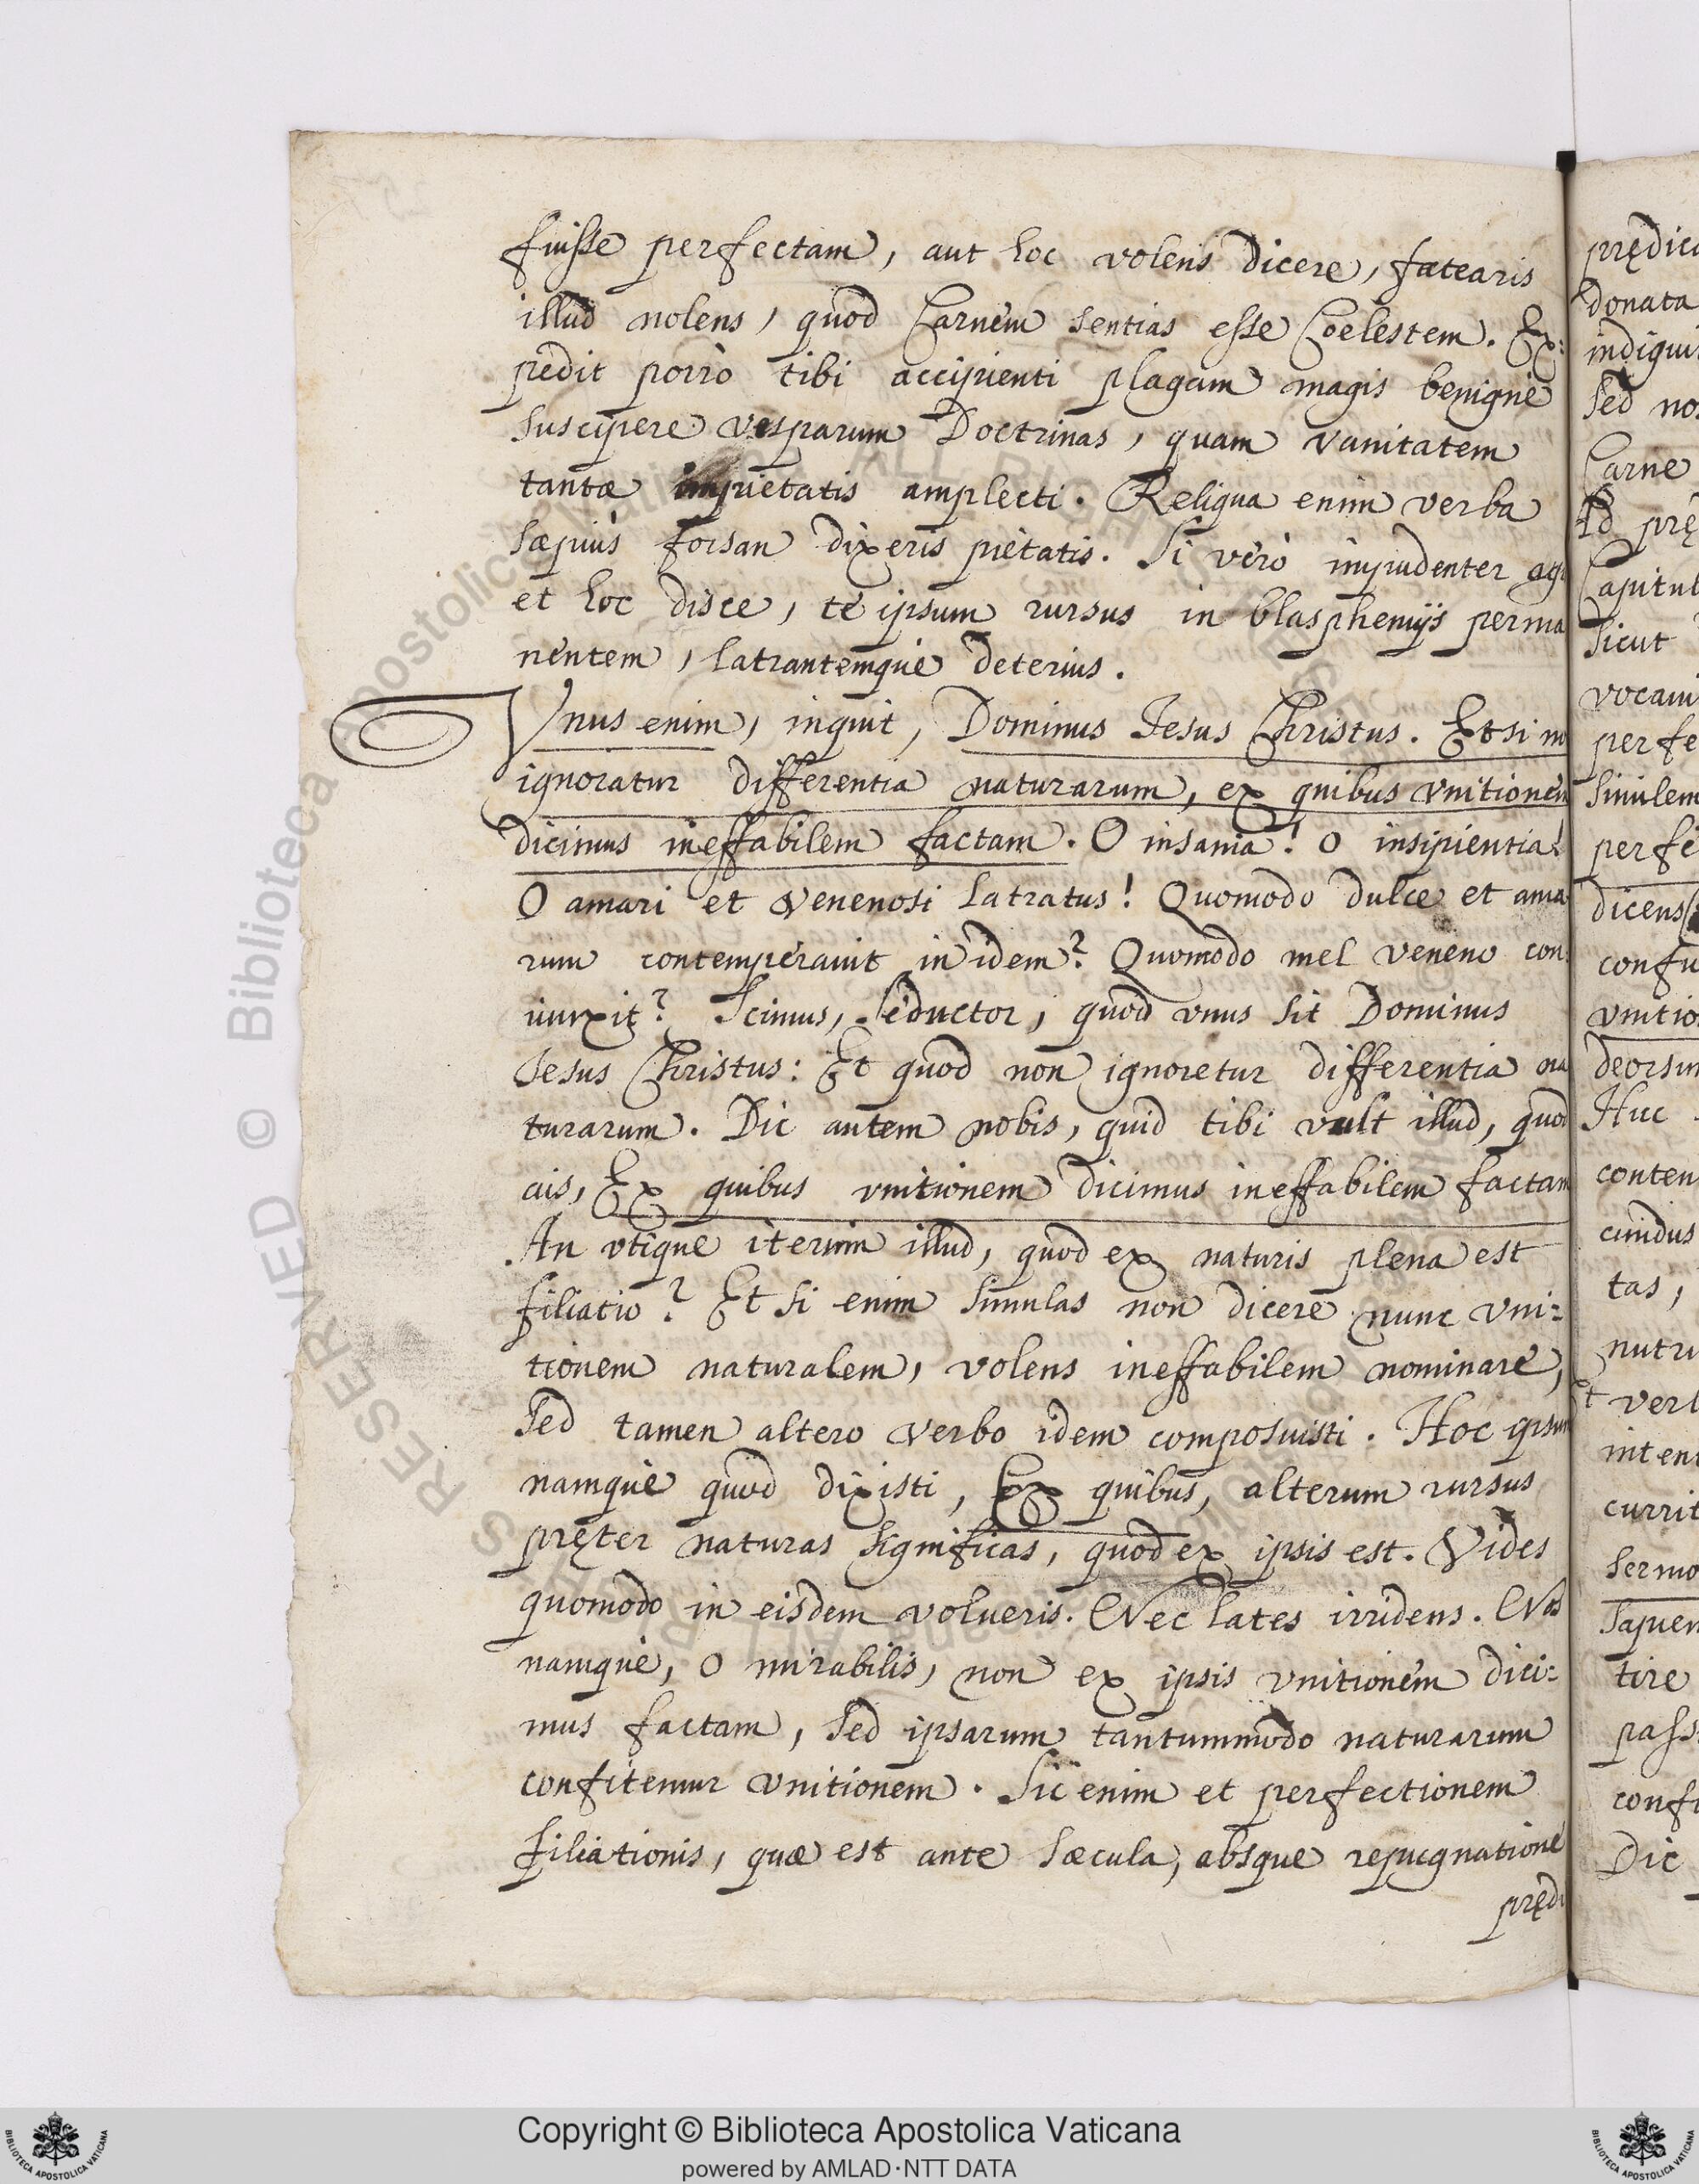 fuisse perfectam, aut hoc volens dicere, fatearis
illud nolens, quod Carnem sentias esse Coelestem. Ex:
pedit porrò tibi accipienti plagam magis benignè
suscipere vesparum Doctrinas, quam vanitatem
tantæ impietatis amplecti. Reliqua enim verba
sæpiùs forsan dixeris pietatis. Si verò impudenter
et hoc disce, te ipsum rursus in blasphemijs perma
nentem, latrantemque deterius.
Vnus enim, inquit, Dominus Jesus Christus. Etsi
ignoratur differentia naturarum, ex quibus vnitionem
dicimus ineffabilem factam. O insania! O insipientia!
O amari et venenosi latratus! Quomodo dulce et ama
rum contemperauit in idem? Quomodo mel veneno con:
iunxit? Scimus, Seductor, quod vnus sit Dominus
Jesus Christus: Et quod non ignoretur differentia na
turarum. Dic autem nobis, quid tibi vult illud, quod
ais, Ex quibus vnitionem dicimus ineffabilem factam
An vtique iterum illud, quod ex naturis plena est
filiatio? Et si enim simulas non dicere nunc vni:
tionem naturalem, volens ineffabilem nominare,
Sed tamen altero verbo idem composuisti. Hoc ipsum
namque quod dixisti, Ex quibus, alterum rursus
pręter naturas significas, quod ex ipsis est. Vides
quomodo in eisdem volueris. Nec lates irridens. Nos
namque, O mirabilis, non ex ipsis vnitionem dici:
mus factam, Sed ipsarum tantummodo naturarum
confitemur vnitionem. Sic enim et perfectionem
filiationis, quæ est ante sæcula, absque repugnatione
prędi
prędic
donata
Sed
Carne
Id prę
Capitul
Sicut
vocaui
perfe
Similem
perfe
dicens
confu
vnitio
deorsum
Huc
conten
cundus
tas,
nutri
et vert
inten
currit
Sermo
Sapien
tire
pass
confi
Dic
© Biblioteca Apostolica Vaticana
ALL RIGHTS RESERVED
Copyright © Biblioteca Apostolica Vaticana
powered by AMLAD·NTT DATA
BIBLIOTECA APOSTOLICA VATICANA
BIBLIOTECA APOSTOLICA VATICANA